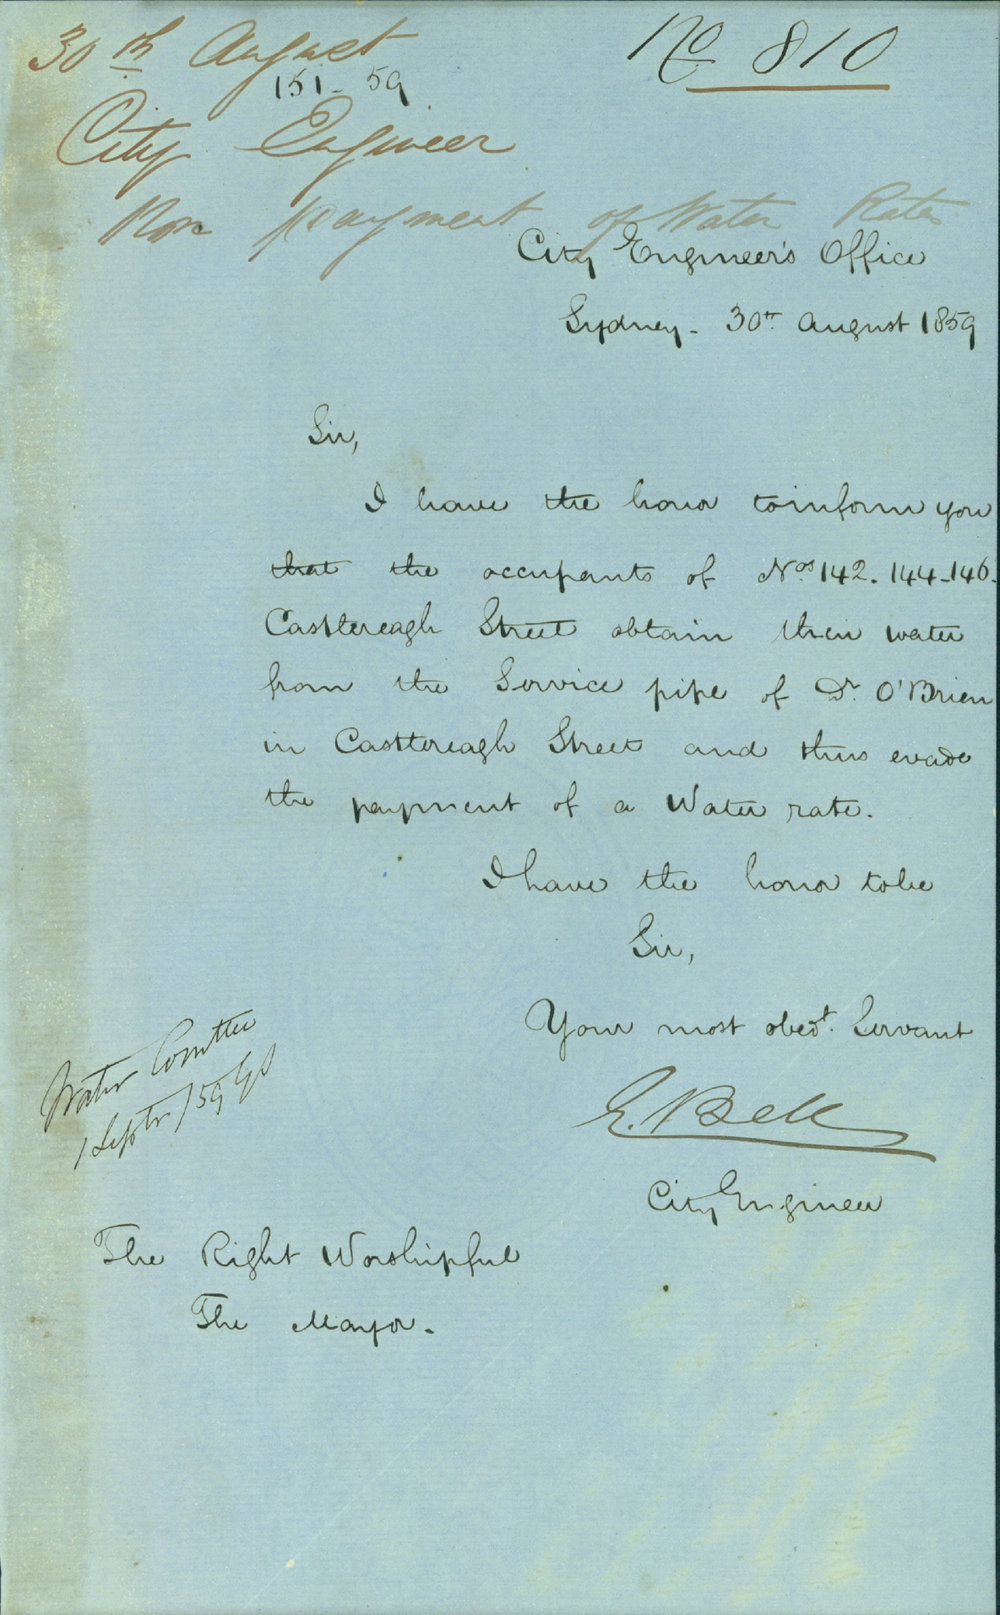 30th August
No 810
151-59
City Engineer
Non payment of Water Rates
City Engineer's Office
Sydney - 30th August 1859
Sir,
I have the honor to inform you
that the occupants of Nos 142. 144-146.
Casttereagh Street obtain their water
from the Service pipe of Dr. O'Brien
in Casttereagh Street and thus evade
the payment of a Water rate.
I have the honor to be
Sir,
Your most obedt. Servant
E. Bell
City Engineer
Water Comttee
1 Septr / 59
The Right Worshipful
The Mayor.